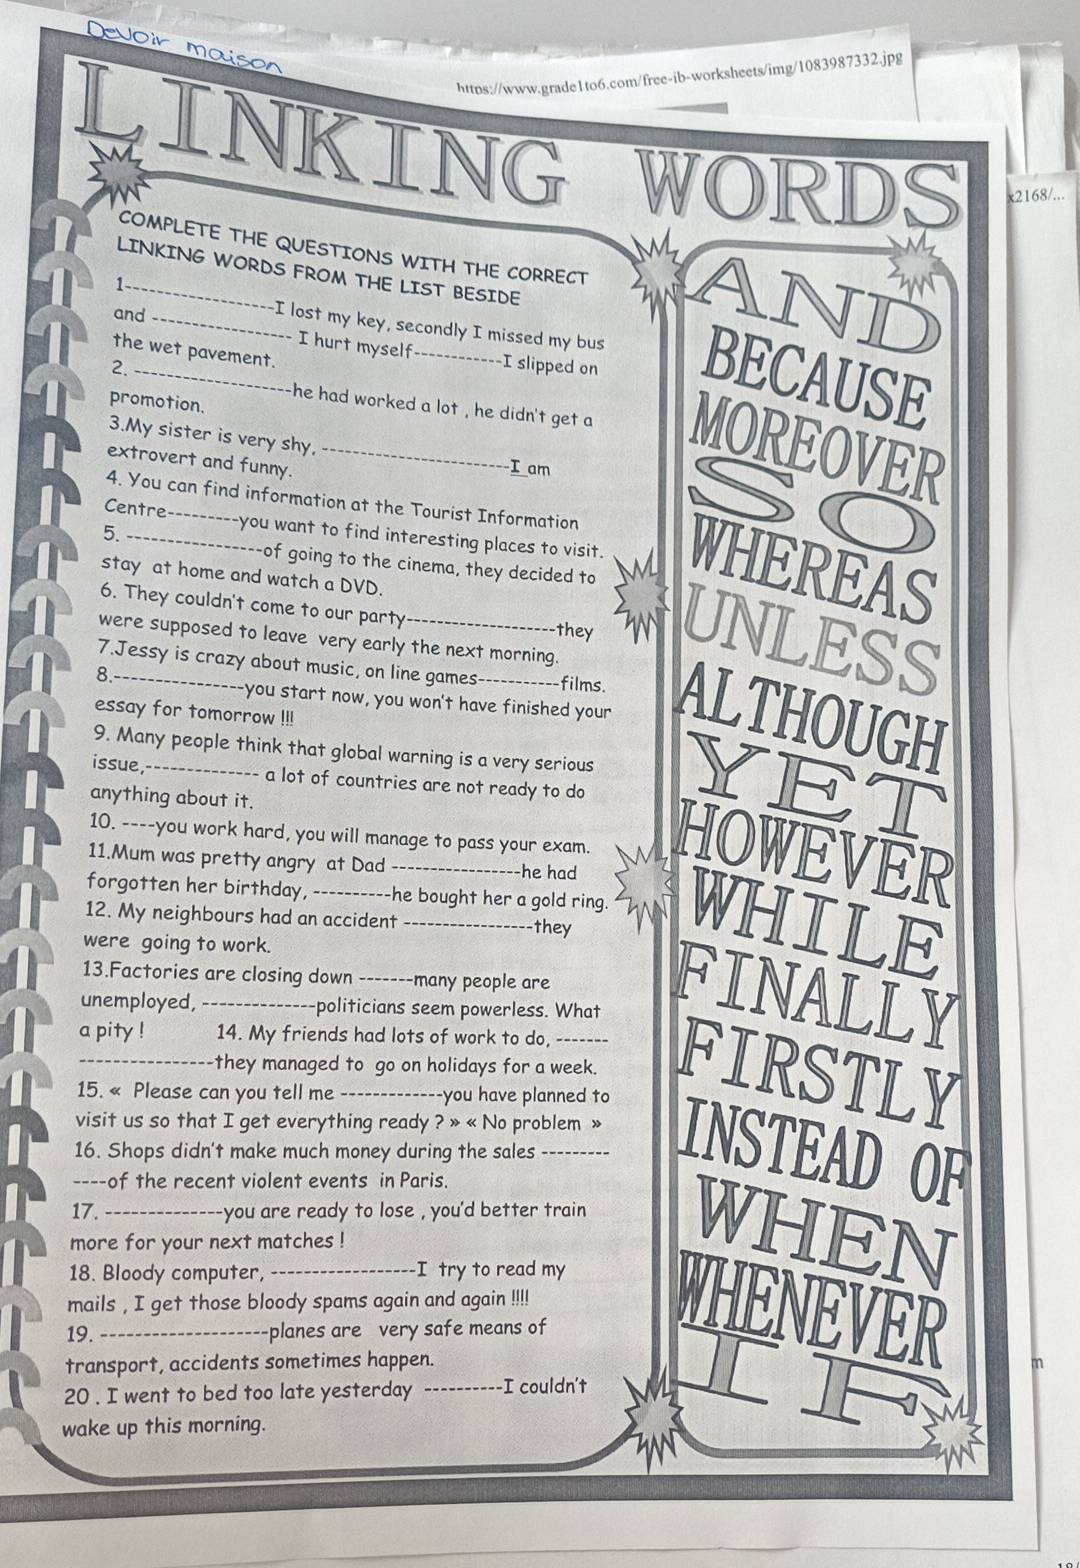 Devoir maison
https://www.grade1to6.com/free-ib-worksheets/img/1083987332.jpg
x2168/...
LINKING WORDS
COMPLETE THE QUESTIONS WITH THE CORRECT
LINKING WORDS FROM THE LIST BESIDE
1-----------------I lost my key, secondly I missed my bus
and ----------------- I hurt myself------------I slipped on
the wet pavement.
2. -------------------he had worked a lot , he didn't get a
promotion.
3.My sister is very shy, ----------------------I am
extrovert and funny.
4. You can find information at the Tourist Information
Centre---------you want to find interesting places to visit.
5. ----------------of going to the cinema, they decided to
stay at home and watch a DVD.
6. They couldn't come to our party------------------they
were supposed to leave very early the next morning.
7.Jessy is crazy about music, on line games-----------films.
8.----------------you start now, you won't have finished your
essay for tomorrow !!!
9. Many people think that global warning is a very serious
issue,-------------- a lot of countries are not ready to do
anything about it.
10. ----you work hard, you will manage to pass your exam.
11.Mum was pretty angry at Dad ----------------he had
forgotten her birthday, ----------he bought her a gold ring.
12. My neighbours had an accident ----------------they
were going to work.
13.Factories are closing down -------many people are
unemployed, --------------politicians seem powerless. What
a pity ! 14. My friends had lots of work to do, -------
-----------------they managed to go on holidays for a week.
15. « Please can you tell me -------------you have planned to
visit us so that I get everything ready ? » « No problem »
16. Shops didn't make much money during the sales ---------
----of the recent violent events in Paris.
17. --------------you are ready to lose , you'd better train
more for your next matches !
18. Bloody computer, ------------------I try to read my
mails , I get those bloody spams again and again !!!!
19. --------------------planes are very safe means of
transport, accidents sometimes happen.
20 . I went to bed too late yesterday ----------I couldn't
wake up this morning.
AND
BECAUSE
MOREOVER
SO
WHEREAS
UNLESS
ALTHOUGH
YET
HOWEVER
WHILE
FINALLY
FIRSTLY
INSTEAD OF
WHEN
WHENEVER
IF
m